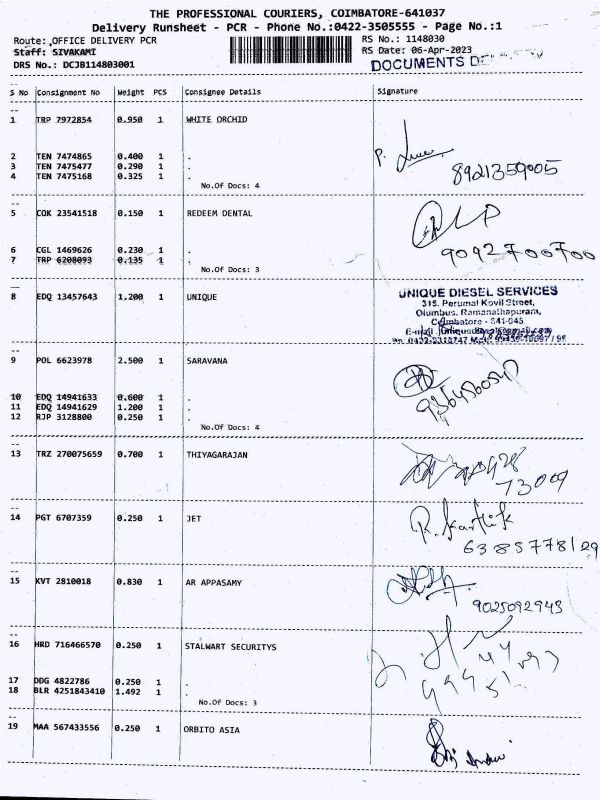 THE PROFESSIONAL COURIERS, COIMBATORE-641037
Delivery Runsheet - PCR - Phone No.:0422-3505555 - Page No.:1
Route: OFFICE DELIVERY PCR RS No.: 1148030
Staff: SIVAKAMI RS Date: 06-Apr-2023
DRS No.: DCJB114803001 DOCUMENTS
S No Consignment No Weight PCS Consignee Details Signature
1 TRP 7972854 0.950 1 WHITE ORCHID
2 TEN 7474865 0.400 1 .
3 TEN 7475477 0.290 1 .
4 TEN 7475168 0.325 1 . 8921359005
No.Of Docs: 4
5 COK 23541518 0.150 1 REDEEM DENTAL
6 CGL 1469626 0.230 1 . 9092700700
7 TRP 6208093 0.135 1 .
No.Of Docs: 3
8 EDQ 13457643 1.200 1 UNIQUE UNIQUE DIESEL SERVICES
315. Perumal Kovil Street,
Olumbus, Ramanathapuram,
Coimbatore - 641 045.
9 POL 6623978 2.500 1 SARAVANA
10 EDQ 14941633 0.600 1 .
11 EDQ 14941629 1.200 1 .
12 RJP 3128800 0.250 1 .
No.Of Docs: 4
13 TRZ 270075659 0.700 1 THIYAGARAJAN
73009
14 PGT 6707359 0.250 1 JET R. Karthik
6385778129
15 KVT 2810018 0.830 1 AR APPASAMY
9025092943
16 HRD 716466570 0.250 1 STALWART SECURITYS
17 DDG 4822786 0.250 1 .
18 BLR 4251843410 1.492 1 .
No.Of Docs: 3
19 MAA 567433556 0.250 1 ORBITO ASIA